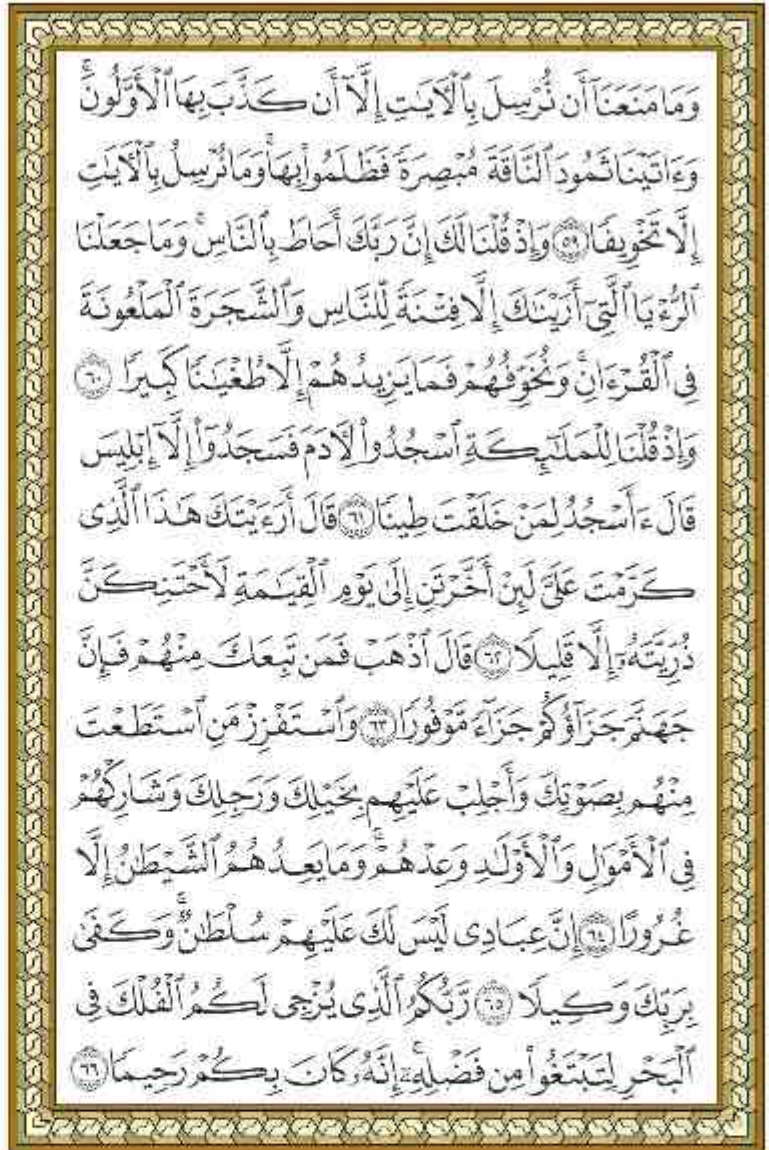 وَمَا مَنَعَنَآ أَن نُّرْسِلَ بِٱلْءَايَٰتِ إِلَّآ أَن كَذَّبَ بِهَا ٱلْأَوَّلُونَۚ
وَءَاتَيْنَا ثَمُودَ ٱلنَّاقَةَ مُبْصِرَةً فَظَلَمُوا۟ بِهَاۚ وَمَا نُرْسِلُ بِٱلْءَايَٰتِ
إِلَّا تَخْوِيفًا ٥٩ وَإِذْ قُلْنَا لَكَ إِنَّ رَبَّكَ أَحَاطَ بِٱلنَّاسِۚ وَمَا جَعَلْنَا
ٱلرُّءْيَا ٱلَّتِىٓ أَرَيْنَٰكَ إِلَّا فِتْنَةً لِّلنَّاسِ وَٱلشَّجَرَةَ ٱلْمَلْعُونَةَ
فِى ٱلْقُرْءَانِۚ وَنُخَوِّفُهُمْ فَمَا يَزِيدُهُمْ إِلَّا طُغْيَٰنًا كَبِيرًا ٦٠
وَإِذْ قُلْنَا لِلْمَلَٰٓئِكَةِ ٱسْجُدُوا۟ لِءَادَمَ فَسَجَدُوٓا۟ إِلَّآ إِبْلِيسَ
قَالَ ءَأَسْجُدُ لِمَنْ خَلَقْتَ طِينًا ٦١ قَالَ أَرَءَيْتَكَ هَٰذَا ٱلَّذِى
كَرَّمْتَ عَلَىَّ لَئِنْ أَخَّرْتَنِ إِلَىٰ يَوْمِ ٱلْقِيَٰمَةِ لَأَحْتَنِكَنَّ
ذُرِّيَّتَهُۥٓ إِلَّا قَلِيلًا ٦٢ قَالَ ٱذْهَبْ فَمَن تَبِعَكَ مِنْهُمْ فَإِنَّ
جَهَنَّمَ جَزَآؤُكُمْ جَزَآءً مَّوْفُورًا ٦٣ وَٱسْتَفْزِزْ مَنِ ٱسْتَطَعْتَ
مِنْهُم بِصَوْتِكَ وَأَجْلِبْ عَلَيْهِم بِخَيْلِكَ وَرَجِلِكَ وَشَارِكْهُمْ
فِى ٱلْأَمْوَٰلِ وَٱلْأَوْلَٰدِ وَعِدْهُمْۚ وَمَا يَعِدُهُمُ ٱلشَّيْطَٰنُ إِلَّا
غُرُورًا ٦٤ إِنَّ عِبَادِى لَيْسَ لَكَ عَلَيْهِمْ سُلْطَٰنٌۚ وَكَفَىٰ
بِرَبِّكَ وَكِيلًا ٦٥ رَّبُّكُمُ ٱلَّذِى يُزْجِى لَكُمُ ٱلْفُلْكَ فِى
ٱلْبَحْرِ لِتَبْتَغُوا۟ مِن فَضْلِهِۦٓۚ إِنَّهُۥ كَانَ بِكُمْ رَحِيمًا ٦٦